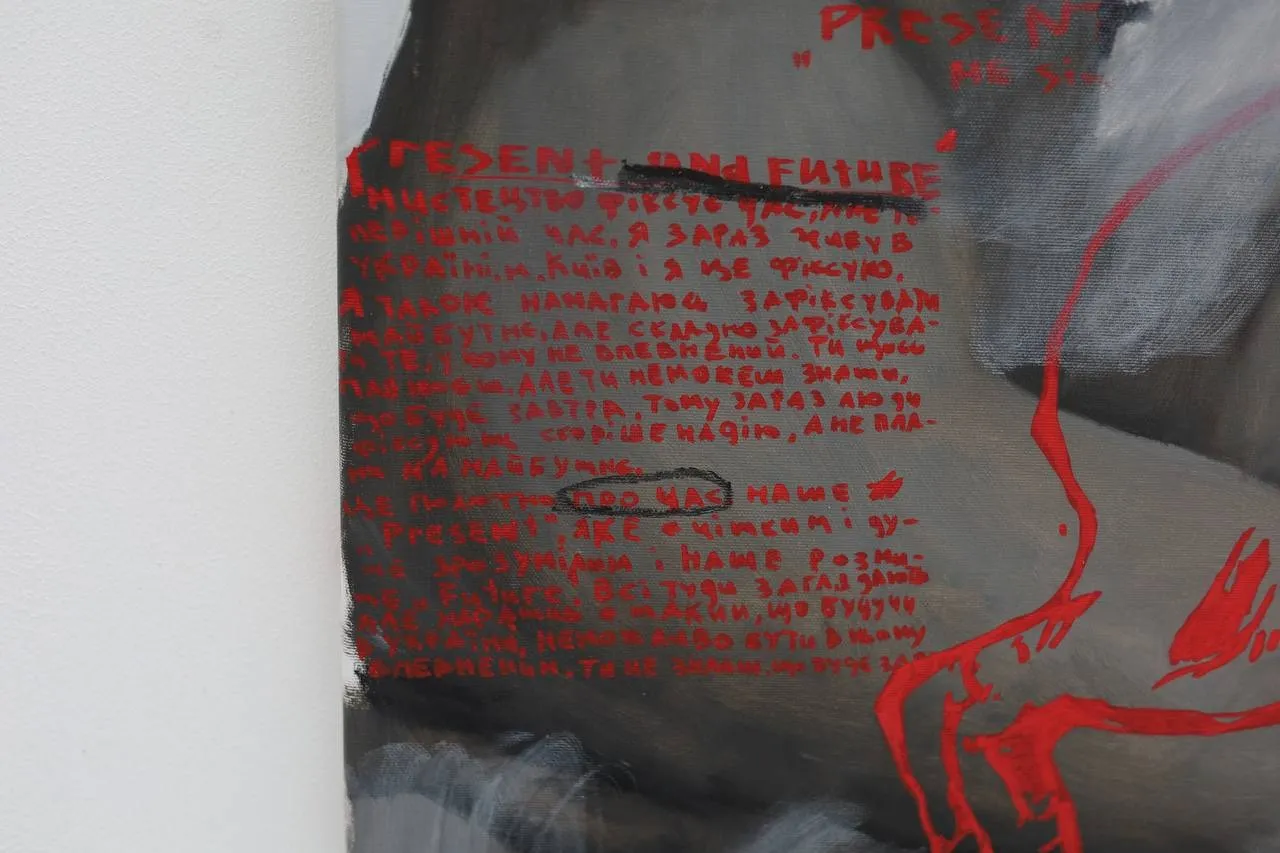 "PRESENT
НЕ
PRESENT and FUTURE
Мистецтво фіксує час, але
час, я зараз живу в
Україні, м. Київ і я це фіксую.
А також намагаюсь зафіксувати
майбутнє, але складно зафіксува-
ти те, у чому не впевнений. Ти щось
плануєш, але ти не можеш знати,
що буде завтра. Тому зараз люди
фіксують скоріше надію, а не пла-
ни на майбутнє.
Це полотно про час наше
"Present", яке є чітким і
зрозумілим і наше розми-
те "Future". Всі
є таким, що будучи
в Україні, неможливо бути в чому
впевненим, ти не знаєш, що буде